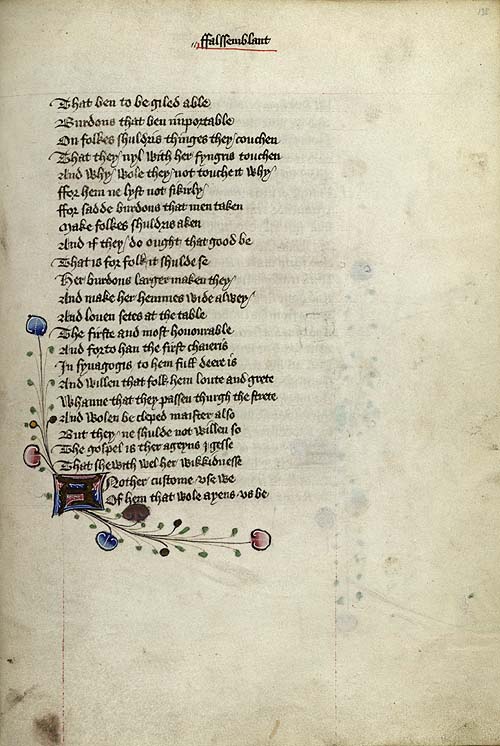 ffalssemblant
That ben to be giled able
Burdons that ben inportable
On folkes shuldris thinges they couchen
That they nyl with her fyngris touchen
And why wole they not touche it why
ffor hem ne lyst not sikirly
ffor sadde burdons that men taken
Make folkes shuldris aken
And if they do ought that good be
That is for folk it shulde se
Her burdons larger maken they
And make her hemmes wide alwey
And louen setes at the table
The firste and most honourable
And forto han the first chaieris
In synagogis to hem full deere is
And willen that folk hem loute and grete
Whanne that they passen thurgh the strete
And wolen be cleped maister also
But they ne shulde not willen so
The gospel is ther ageyns I gesse
That shewith wel her wikkidnesse
Another custome vse we
Of hem that wole ayens vs be